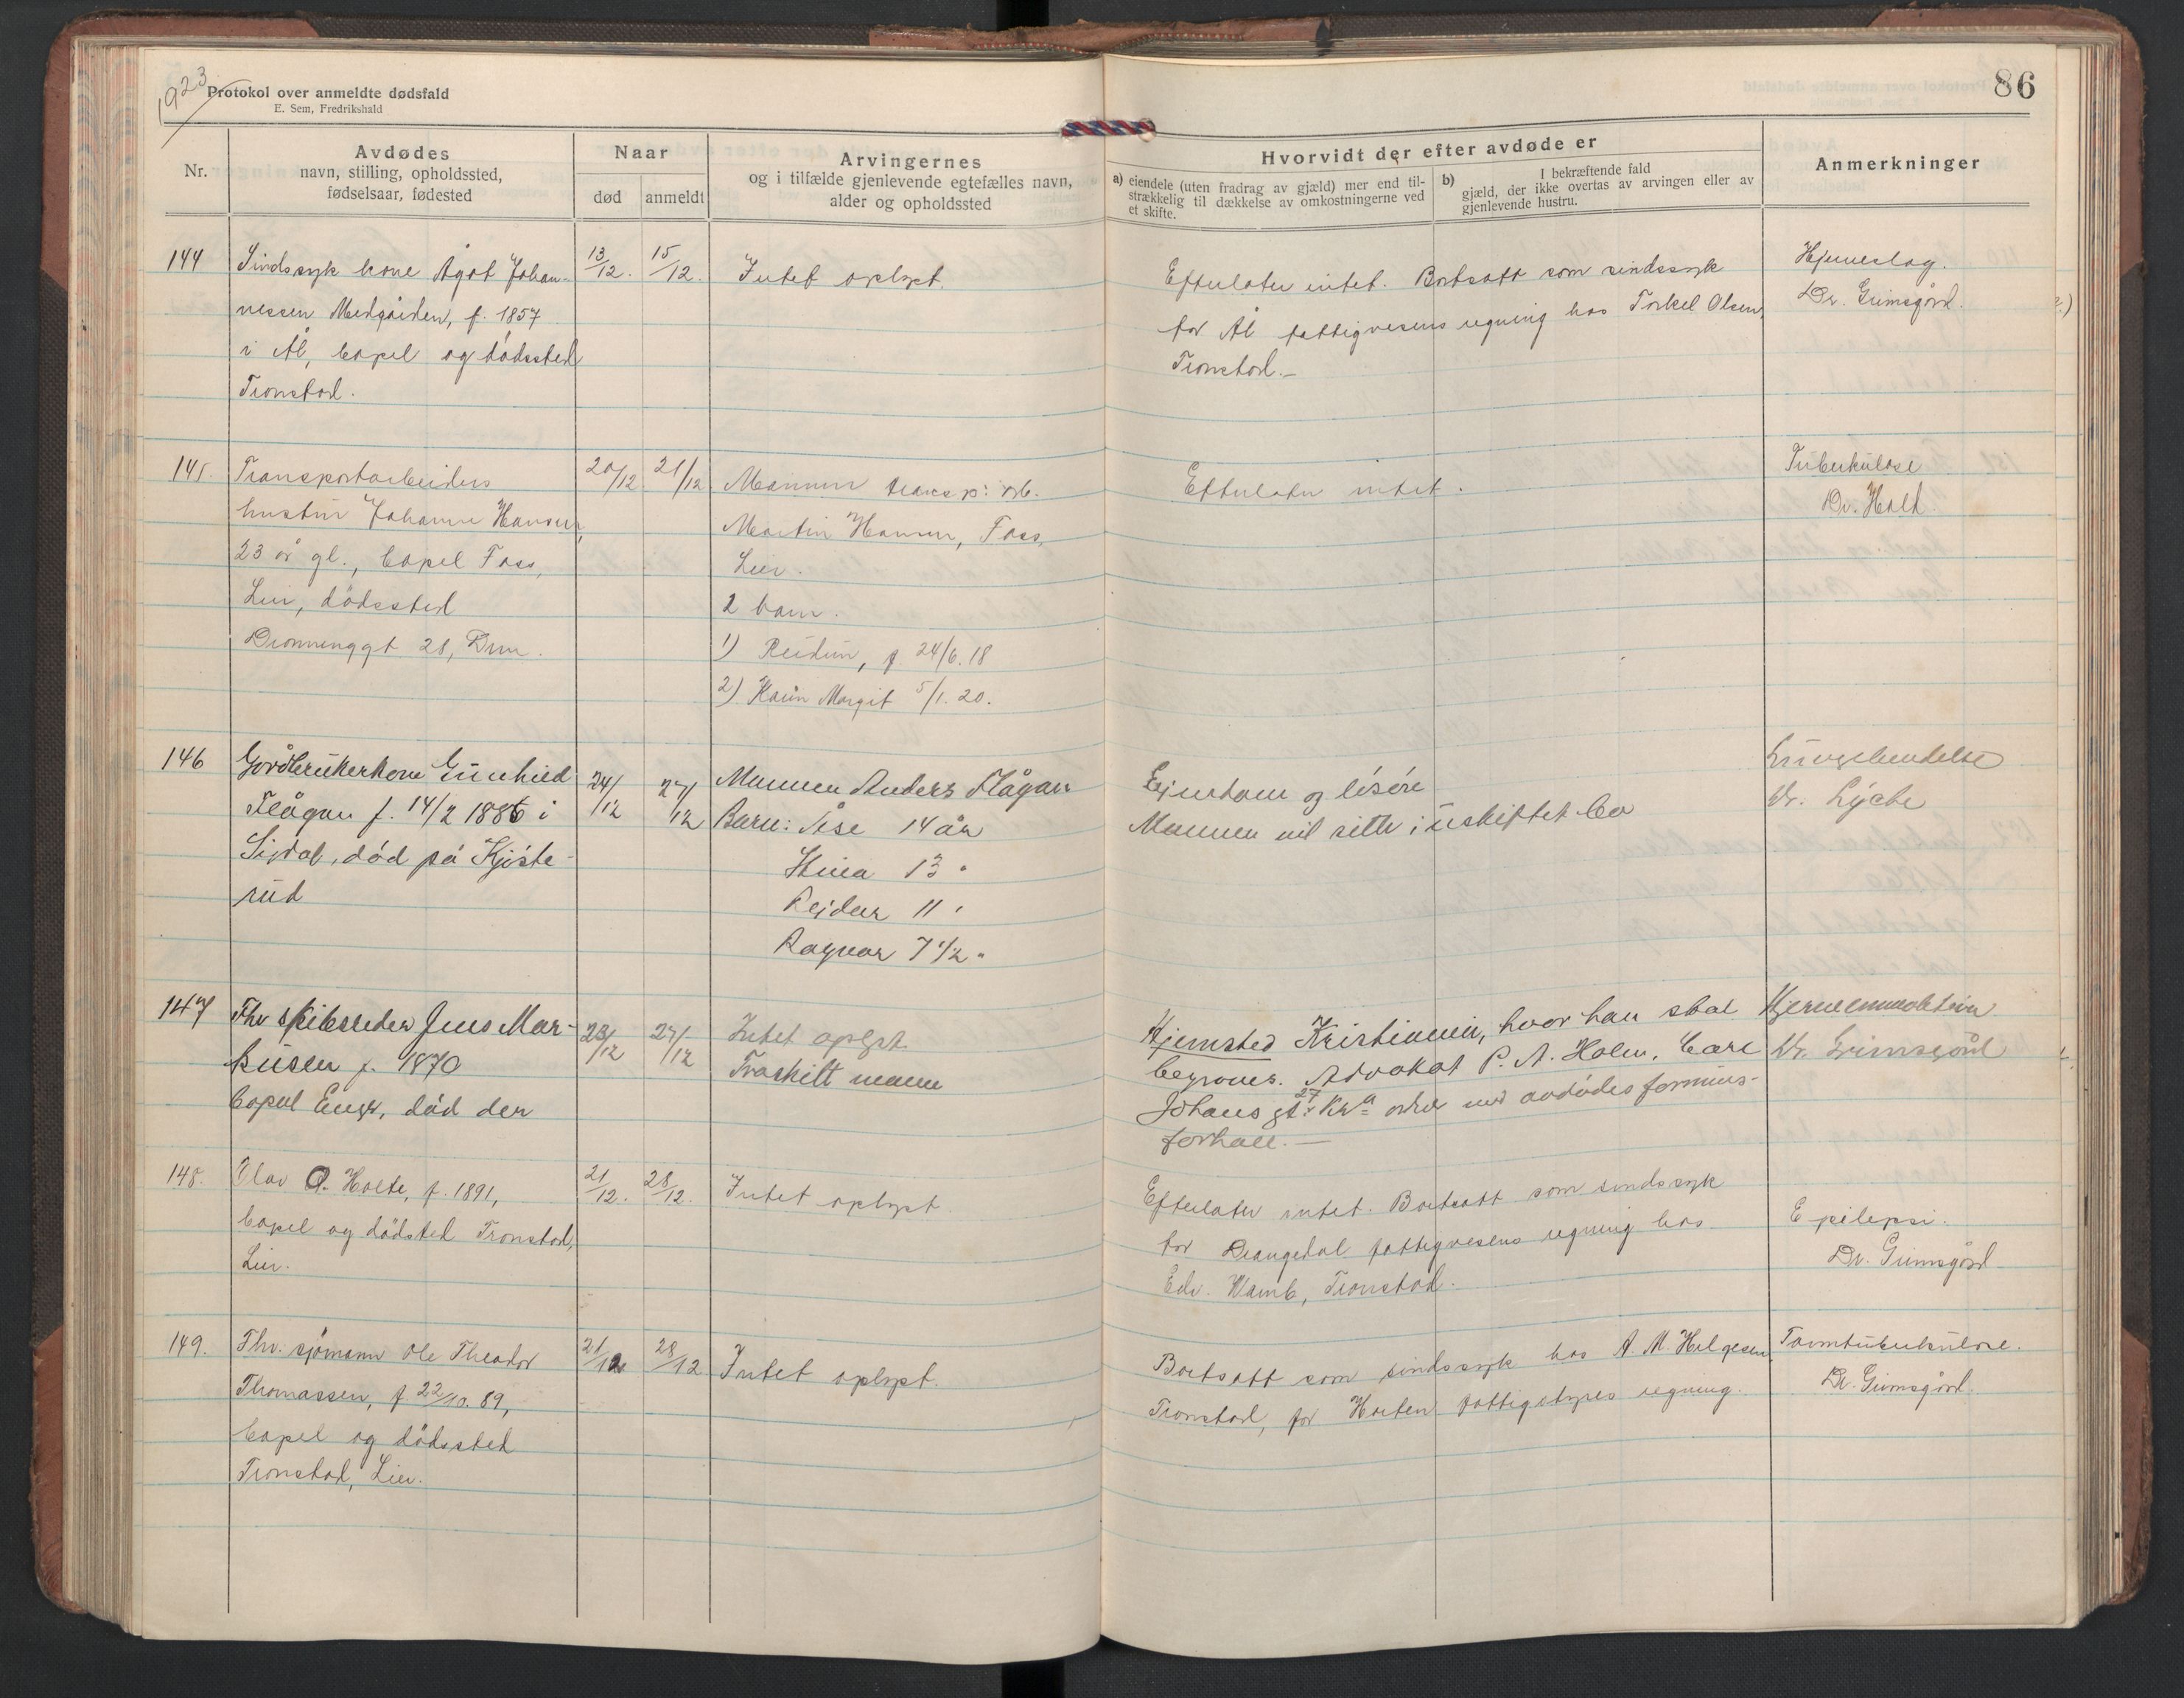 1923
Protokol over anmeldte dødsfald
E. Sem, Fredrikshald
86
Nr.
Avdødes
navn, stilling, opholdssted,
fødselsaar, fødested
Naar
død
anmeldt
Arvingernes
og i tilfælde gjenlevende egtefælles navn,
alder og opholdssted
Hvorvidt der efter avdøde er
a) eiendele (uten fradrag av gjæld) mer end til-
strækkelig til dækkelse av omkostningerne ved
et skifte.
b) I bekræftende fald
gjæld, der ikke overtas av arvingen eller av
gjenlevende hustru.
Anmerkninger
144
Sindssyk kone Ågot Johan-
nessen Medgården, f. 1857
i Ål, bopel og dödssted
Tronstad.
13/12.
15/12.
Intet oplyst.
Efterlater intet. Bortsatt som sindssyk
for Ål fattigvesens regning hos Torkel Olsen,
Tronstad.-
Hjerneslag.
Dr. Grimsgård.
145.
Transportarbeiders
hustru Johanne Hansen,
23 år gl., bopel Foss,
Lier, dödssted
Dronninggt 28, Drm.
20/12
21/12
Mannen transp: arb.
Martin Hansen, Foss,
Lier.
2 barn.
1) Reidun, f. 24/6. 18
2) Karin Margit 5/1. 20.
Efterlater intet.
Tuberkulose
Dr. Holt.
146
Gårdbrukerkone Gunhild
Flågan f. 14/2 1886 i
Sigdal, död på Kjöste-
rud
24/12
27/12
Mannen Anders Flågan
Barn: Åse 14 år
13 "
Reidar 11 "
Ragnar 7 1/2 "
Eiendom og lösöre
Mannen vil sitte i uskiftet bo
Lungebetendelse
Dr. Lyche
147
Fhv skibsreder Jens Mar-
kusen f. 1870
bopel Enger, död der
23/12
27/12
Intet oplyst.
Fraskilt mann
Hjemsted Kristiania, hvor han skal
begraves. Advokat P. A. Holm, Carl
Johans gt. 27 Kra ordner med avdödes formues-
forhold.—
Dr. Grimsgård
148.
Olav O. Holte, f. 1891,
bopel og dödsted Tronstad,
Lier.
21/12.
28/12.
Intet oplyst.
Efterlater intet. Bortsatt som sindssyk
for Drangedal fattigvesens regning hos
Edv. Wamb, Tronstad.
Epilepsi.
Dr. Grimsgård
149.
Fhv. sjömann Ole Theodor
Thomassen, f. 22/10. 89,
bopel og dödssted
Tronstad, Lier.
21/12
28/12
Intet oplyst.
Bortsatt som sindssyk hos A. M. Helgesen,
Tronstad, for Horten fattigstyres regning.
Tarmtuberkulose.
Dr. Grimsgård.